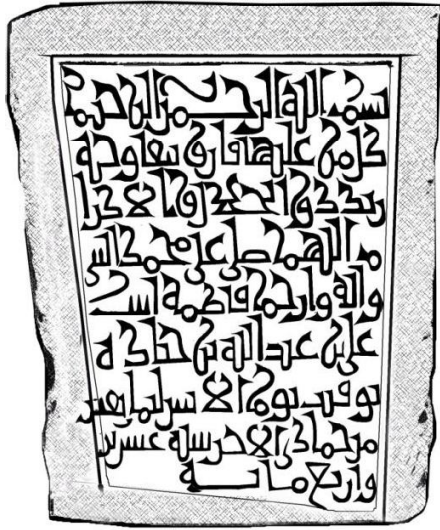 بسم الله الرحمن الرحيم
كل من عليها فان ويبقا وجه
ربك ذو الجلال والاكرا
م اللهم صل على محمد النبي
واله وارحم فاطمة ابنت
علي بن عبدالله بن
توفيت يوم الاثنين لثمان بقين
من جمادى الاخر سنة عشرين
واربع مائة